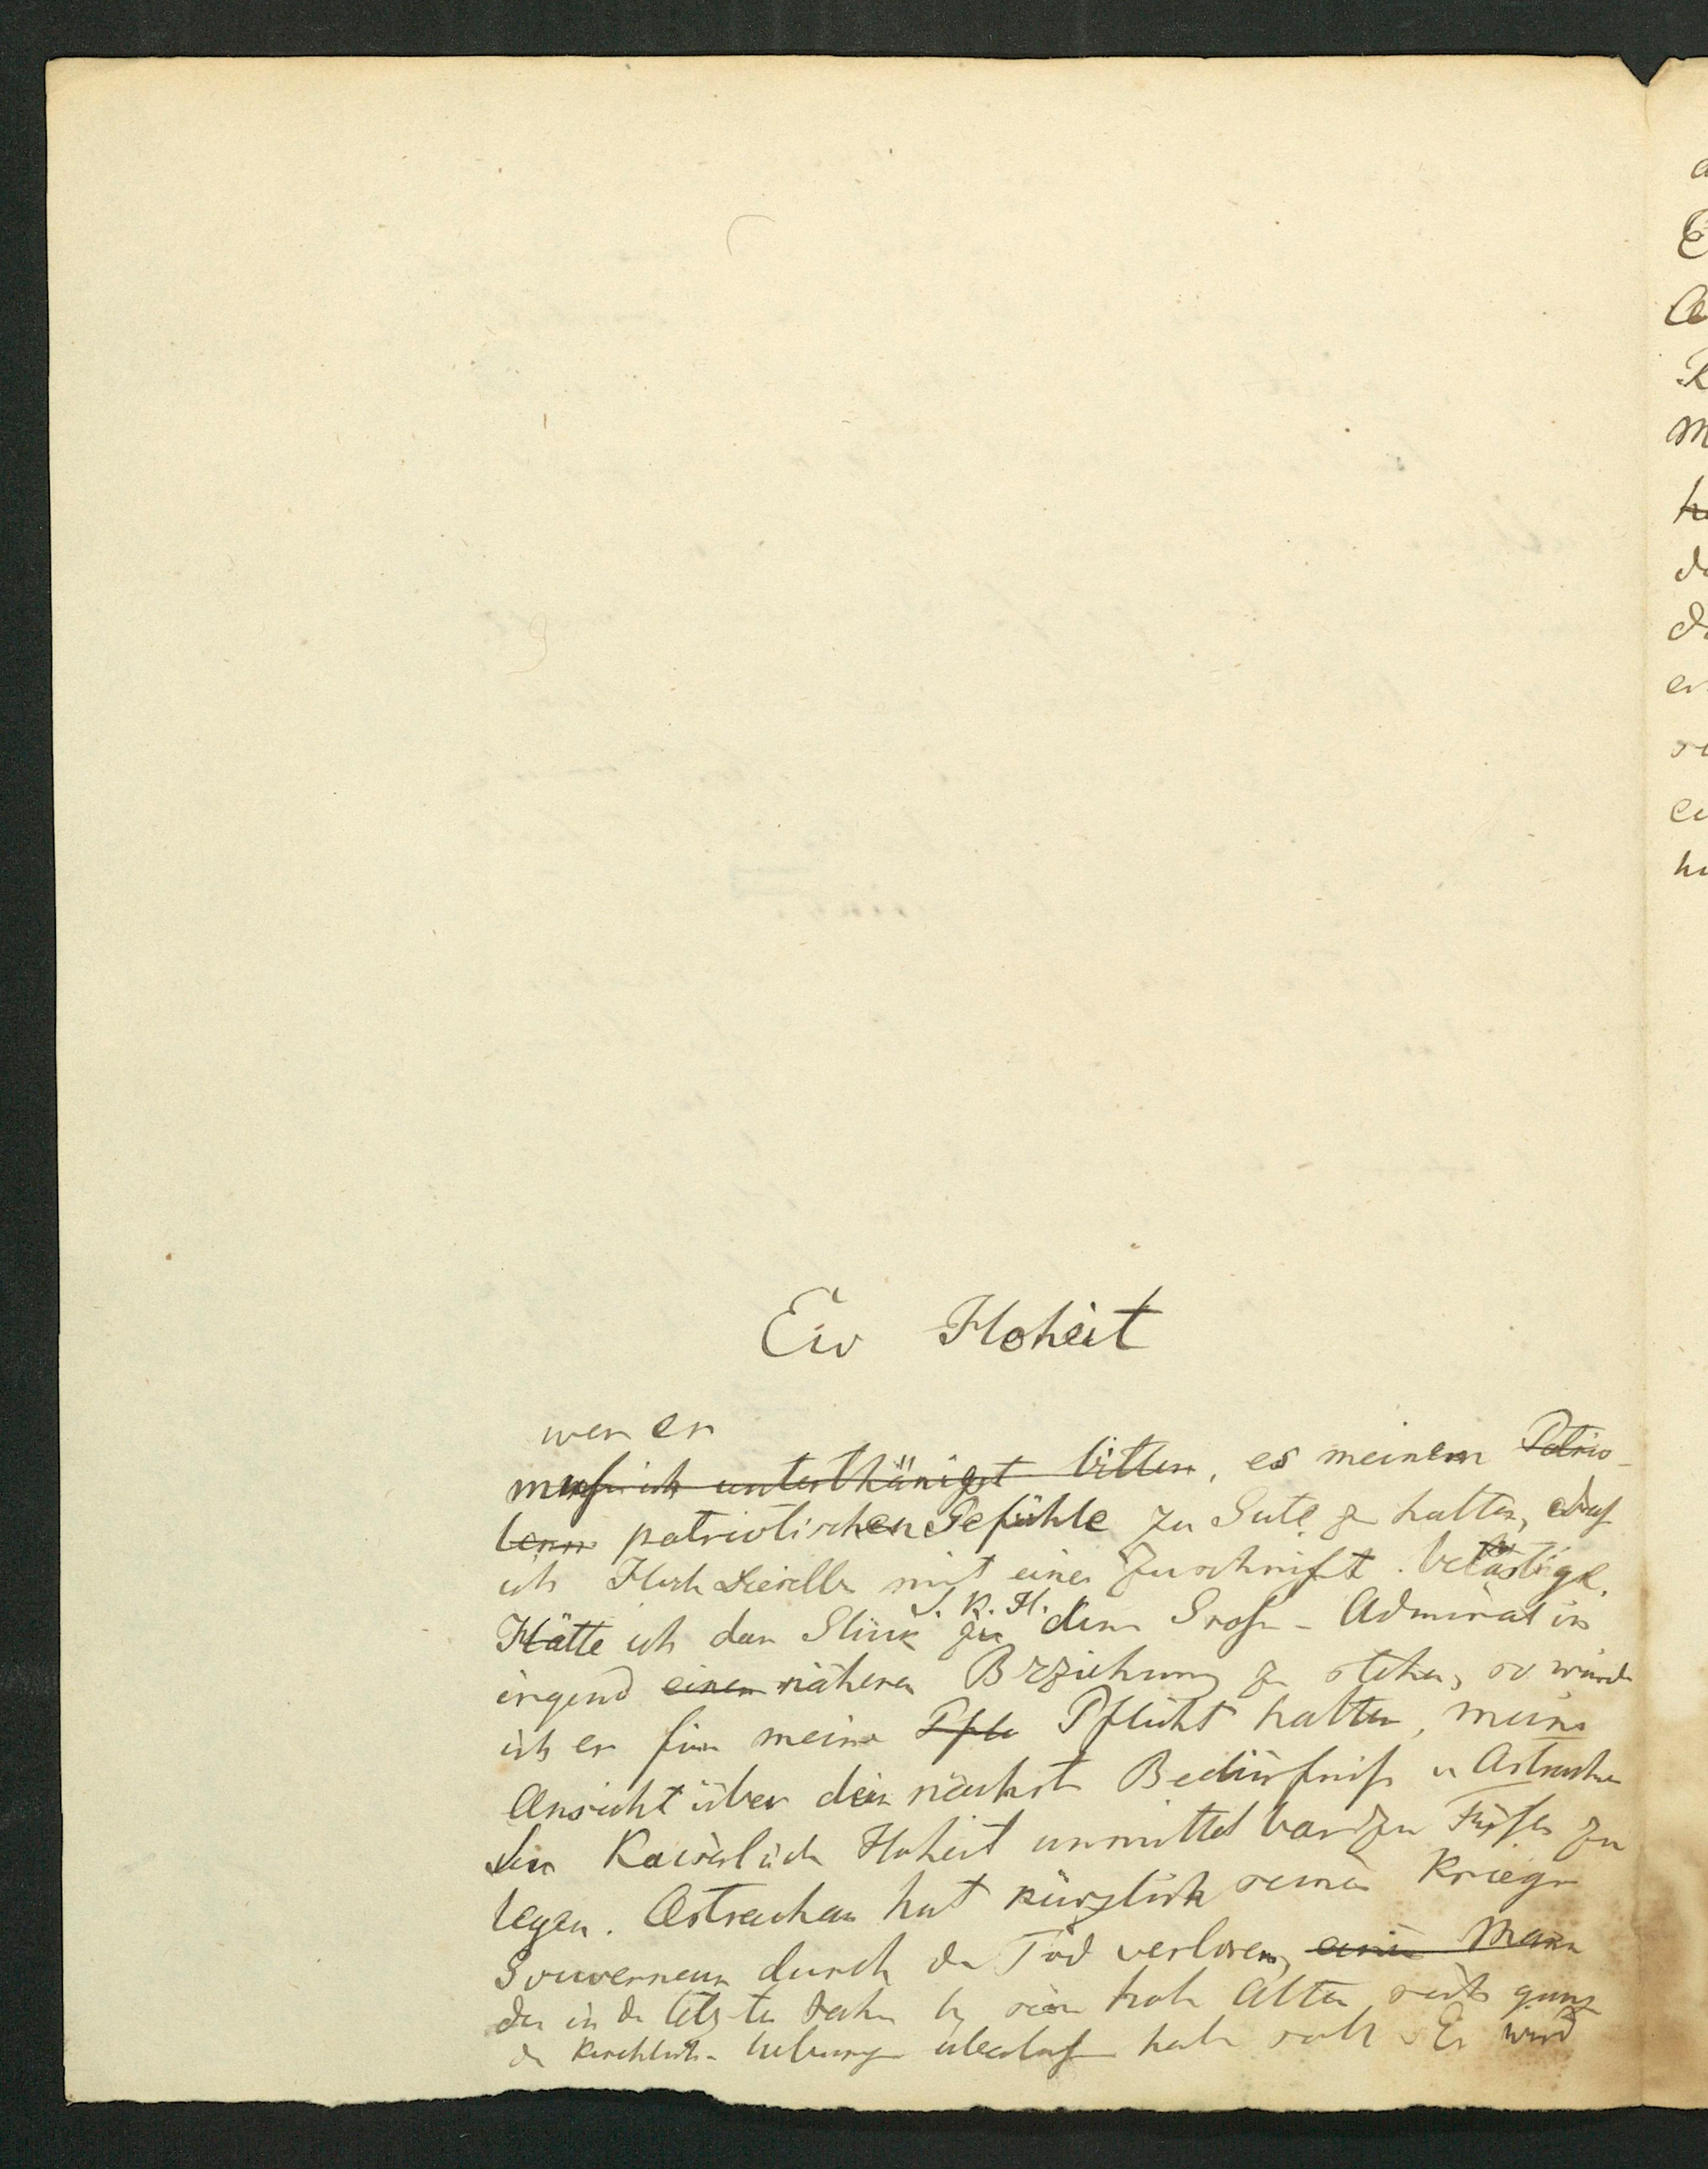 Ew Hoheit
wer en
muss ich unterthänigst bitten, es meinem Patrio-
tenn patriotischen Gefühle zu Gute zu halten, dass
ich Hoch Dieselbe mit einer Zuschrift belästige.
S. K. H.
Hätte ich das Glück zu dem Gross-Admiral in
irgend einer näheren Beziehung zu stehen, so würde
ich es für meine Pfli Pflicht halten, meine
Ansicht über die nächste Bedürfniss in Astrachan
der Kaiserlichen Hoheit unmittelbar zu Füssen zu
legen. Astrachan hat kürzlich seinen Kriegs
Gouverneur durch den Tod verloren, einen Mann
der in den letzten Jahren sein hohes Alter sich ganz
den kirchlichen überlassen haben soll. Er wird
a
E
A
K
M
da
er